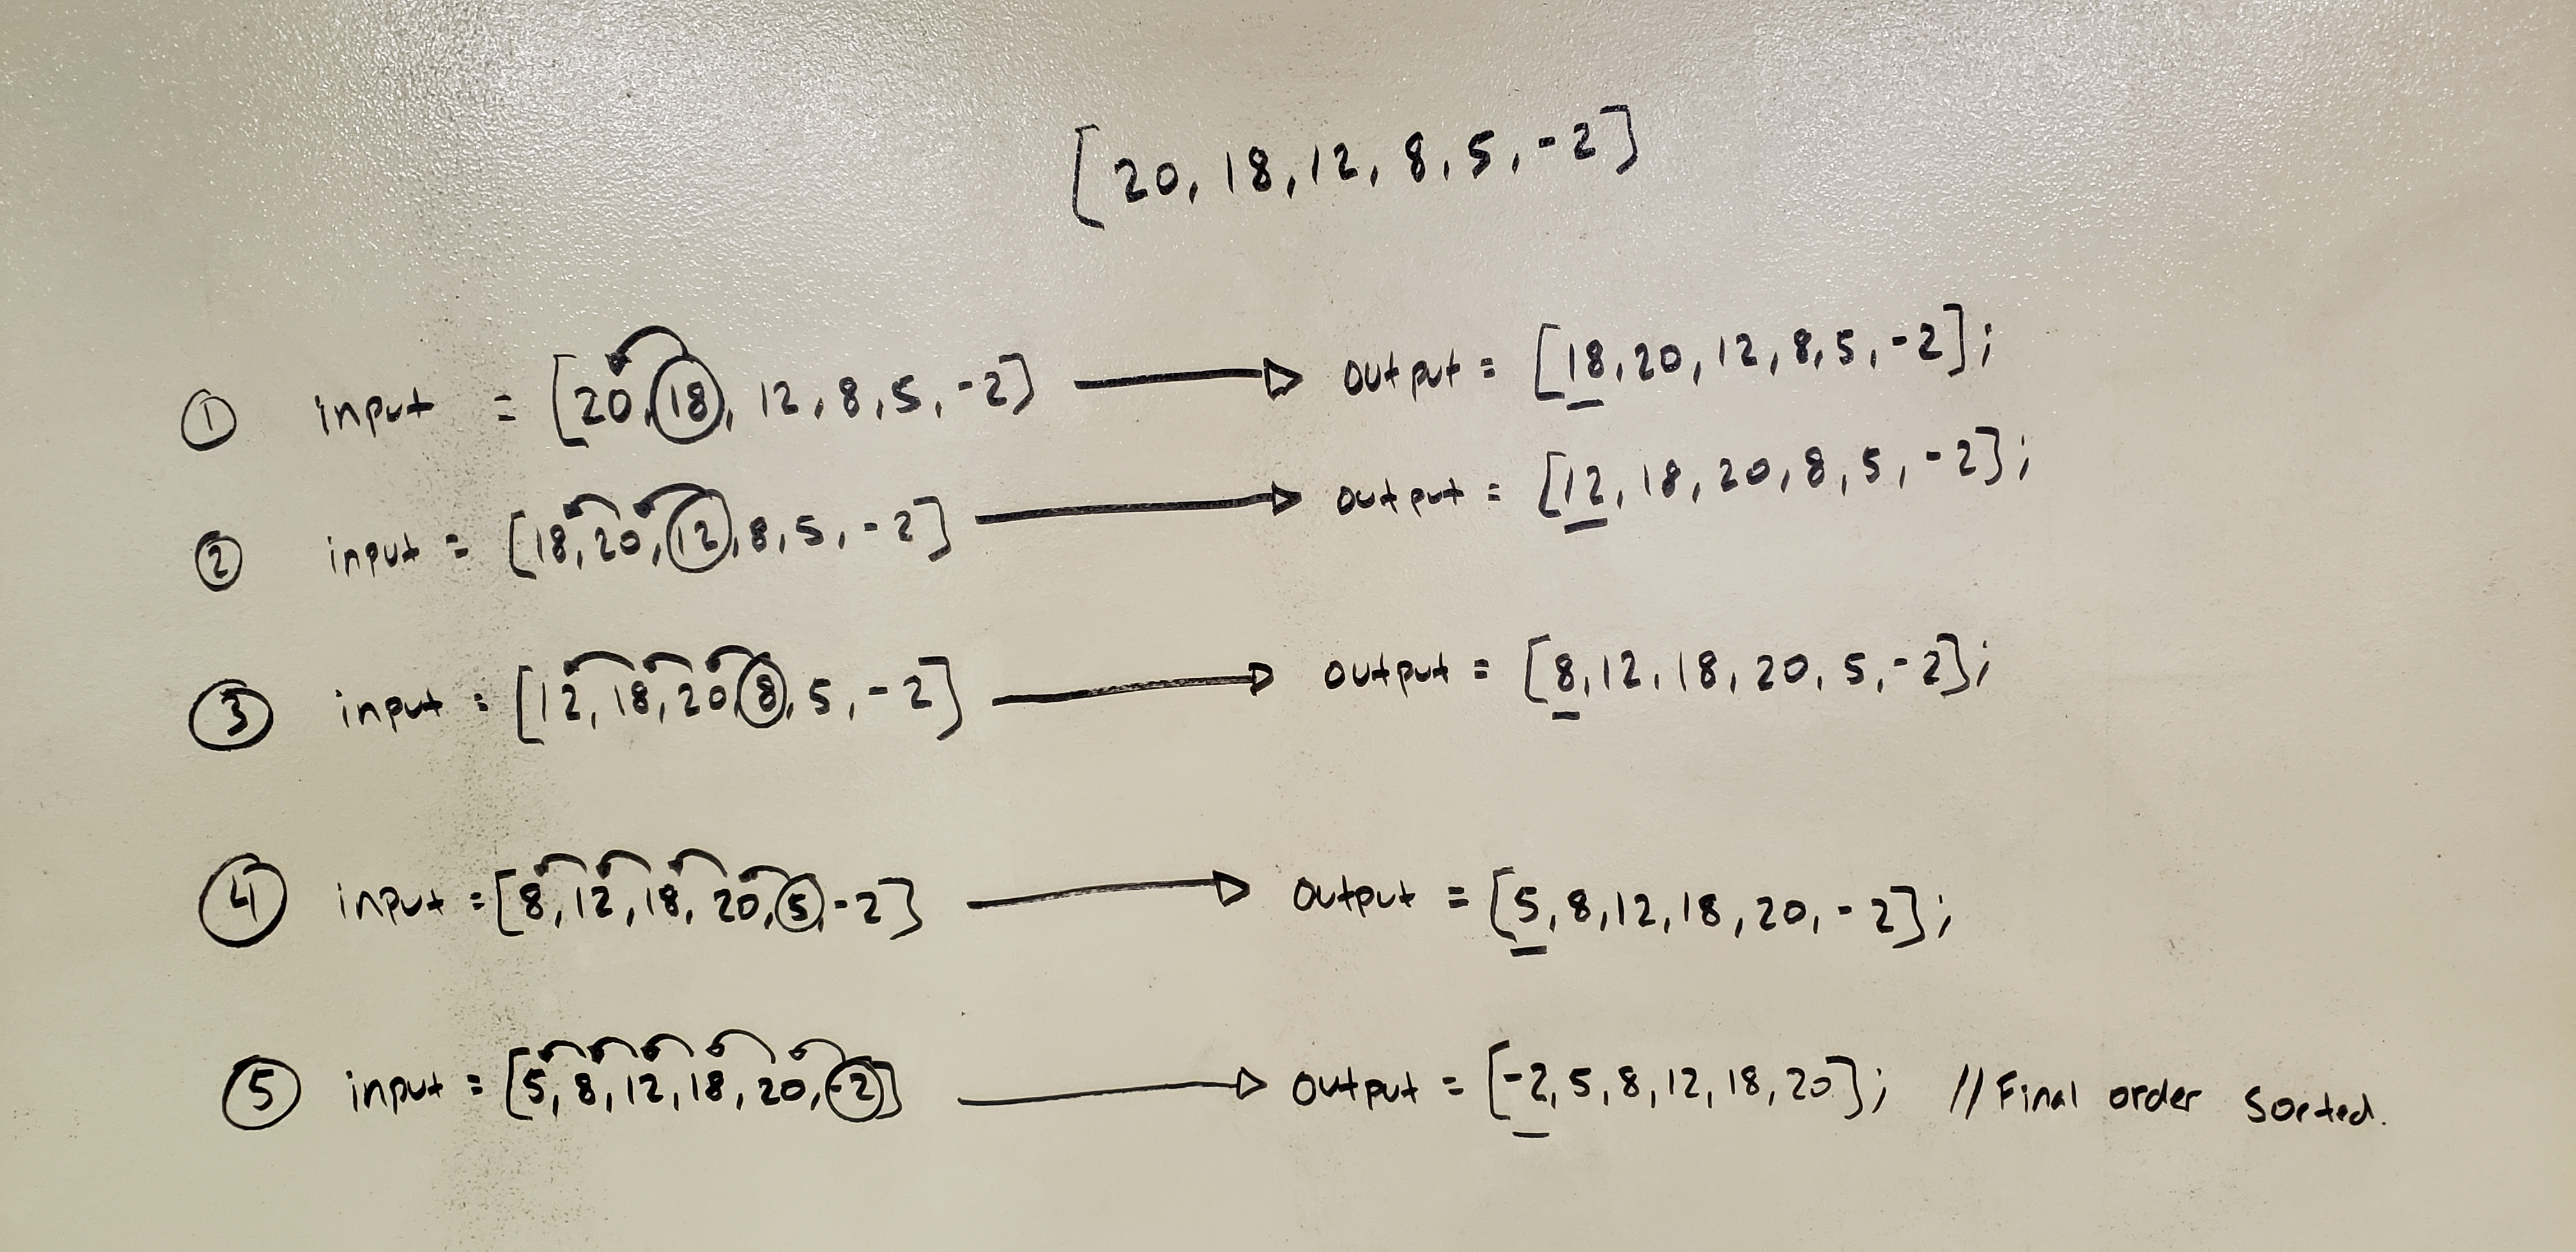 [20, 18, 12, 8, 5, -2]
① input = [20, 18, 12, 8, 5, -2] → output = [18, 20, 12, 8, 5, -2];
② input = [18, 20, 12, 8, 5, -2] → output = [12, 18, 20, 8, 5, -2];
③ input = [12, 18, 20, 8, 5, -2] → output = [8, 12, 18, 20, 5, -2];
④ input = [8, 12, 18, 20, 5, -2] → output = [5, 8, 12, 18, 20, -2];
⑤ input = [5, 8, 12, 18, 20, -2] → output = [-2, 5, 8, 12, 18, 20]; // Final order sorted.